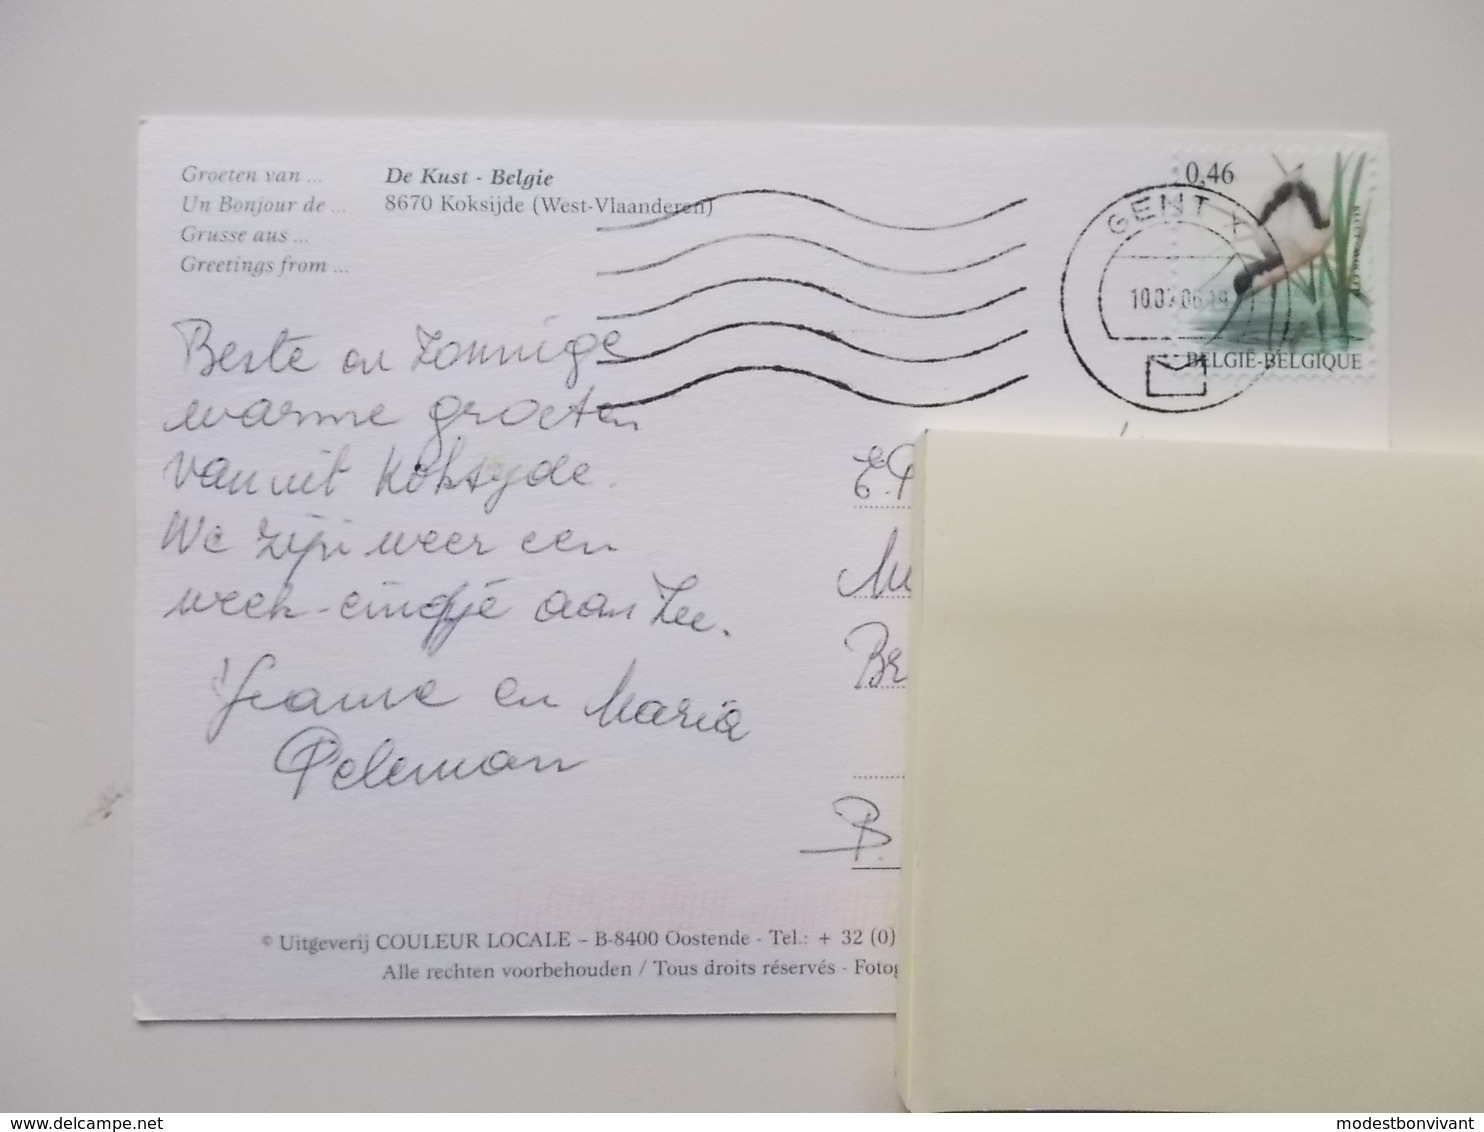 Groeten van ...
De Kust - Belgie
Un Bonjour de ...
8670 Koksijde (West-Vlaanderen)
Grusse aus ...
Greetings from ...
0,46
GENT X
10.07.06
BELGIË-BELGIQUE
Beste en Zonnige
warme groeten
vanuit Koksyde.
We zijn weer een
week-eindje aan Zee.
Jeanne en Maria
Peleman
E.P
Br
B.
© Uitgeverij COULEUR LOCALE – B-8400 Oostende - Tel.: + 32 (0)
Alle rechten voorbehouden / Tous droits réservés - Fotog
delcampe.net
modestbonvivant